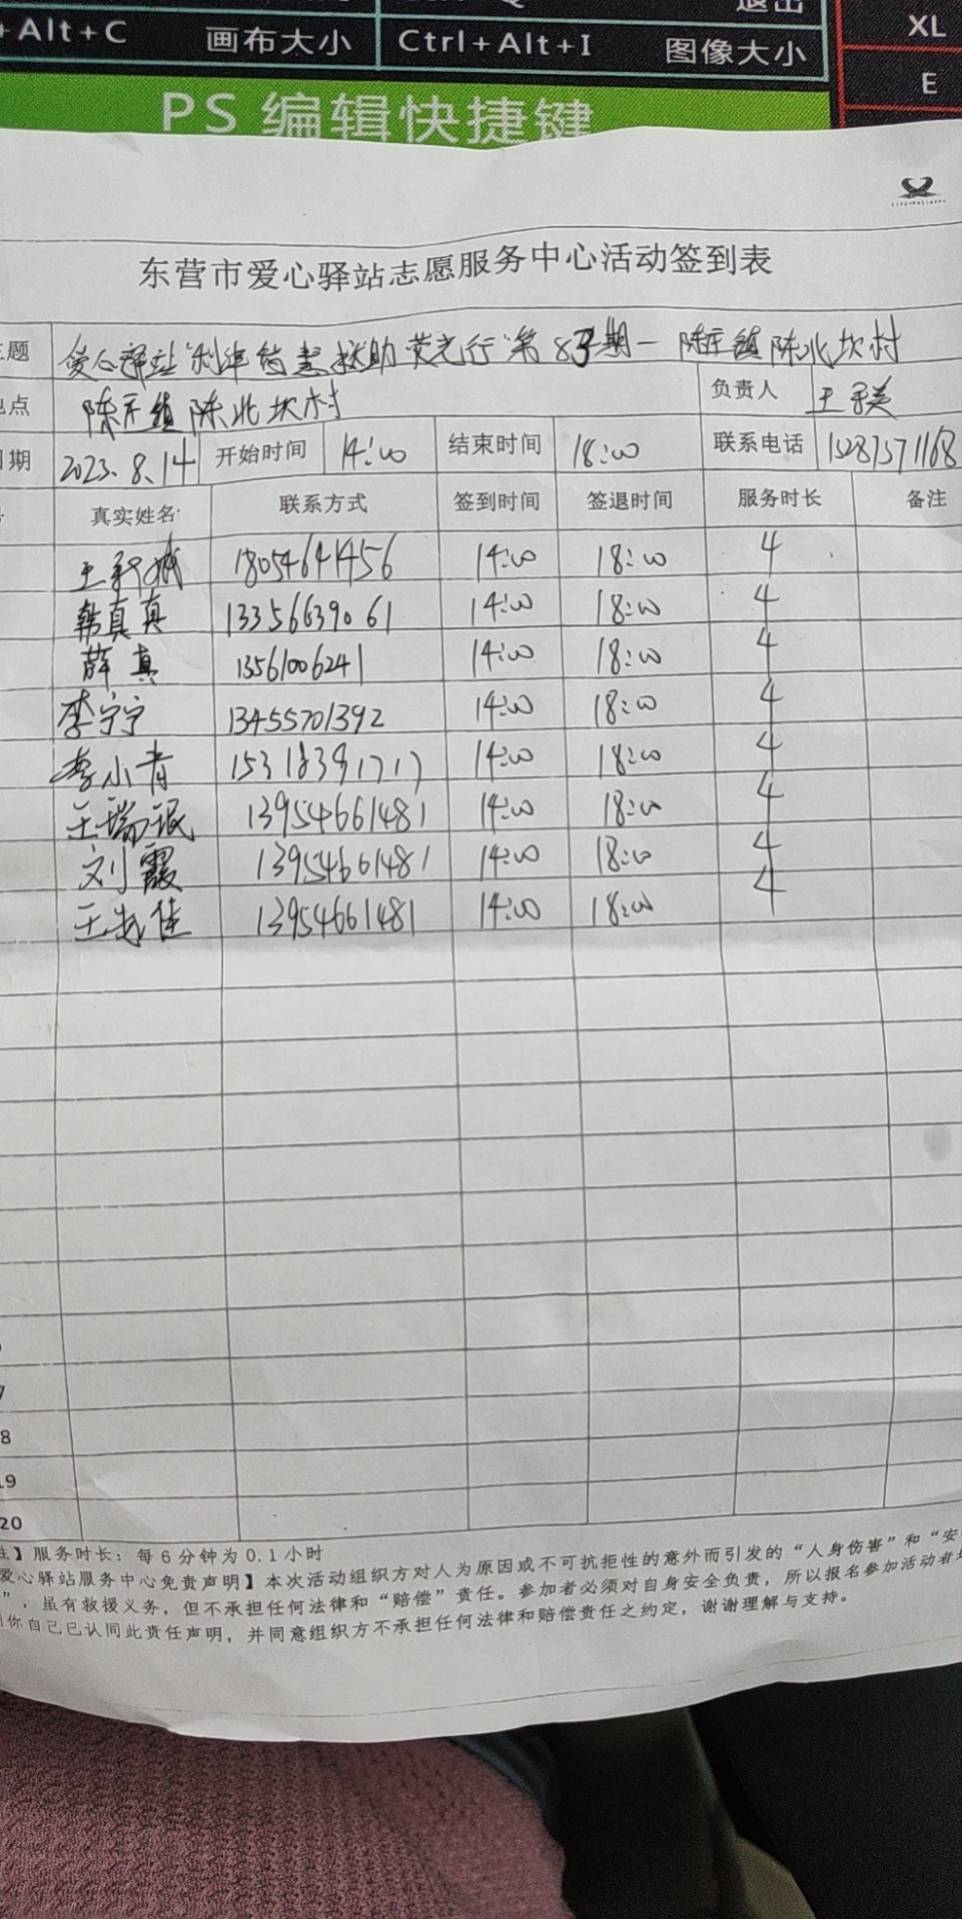 +Alt+C 画布大小 Ctrl+Alt+I 图像大小
退出
XL
E
PS 编辑快捷键
东营市爱心驿站志愿服务中心活动签到表
主题 爱心驿站"利津 助 荧光行"第 8 期一 陈庄镇陈北坎村
地点 陈庄镇陈北坎村 负责人 王 美
日期 2023.8.14 开始时间 14:00 结束时间 18:00 联系电话
号 真实姓名 联系方式 签到时间 签退时间 服务时长 备注
王 18054641456 14:00 18:00 4
韩真真 13356639061 14:00 18:00 4
薛真 13561006241 14:00 18:00 4
李宁宁 13455701392 14:00 18:00 4
李小青 15318391717 14:00 18:00 4
王瑞 13954661481 14:00 18:00 4
刘霞 13954661481 14:00 18:00 4
王 佳 13954661481 14:00 18:00 4
7
8
19
20
注】服务时长：每6分钟为0.1小时
爱心驿站服务中心免责声明】本次活动组织方对人为原因或不可抗拒性的意外而引发的“人身伤害”和“安
”，虽有救援义务，但不承担任何法律和“赔偿”责任。参加者必须对自身安全负责，所以报名参加活动者
你自己已认同此责任声明，并同意组织方不承担任何法律和赔偿责任之约定，谢谢理解与支持。